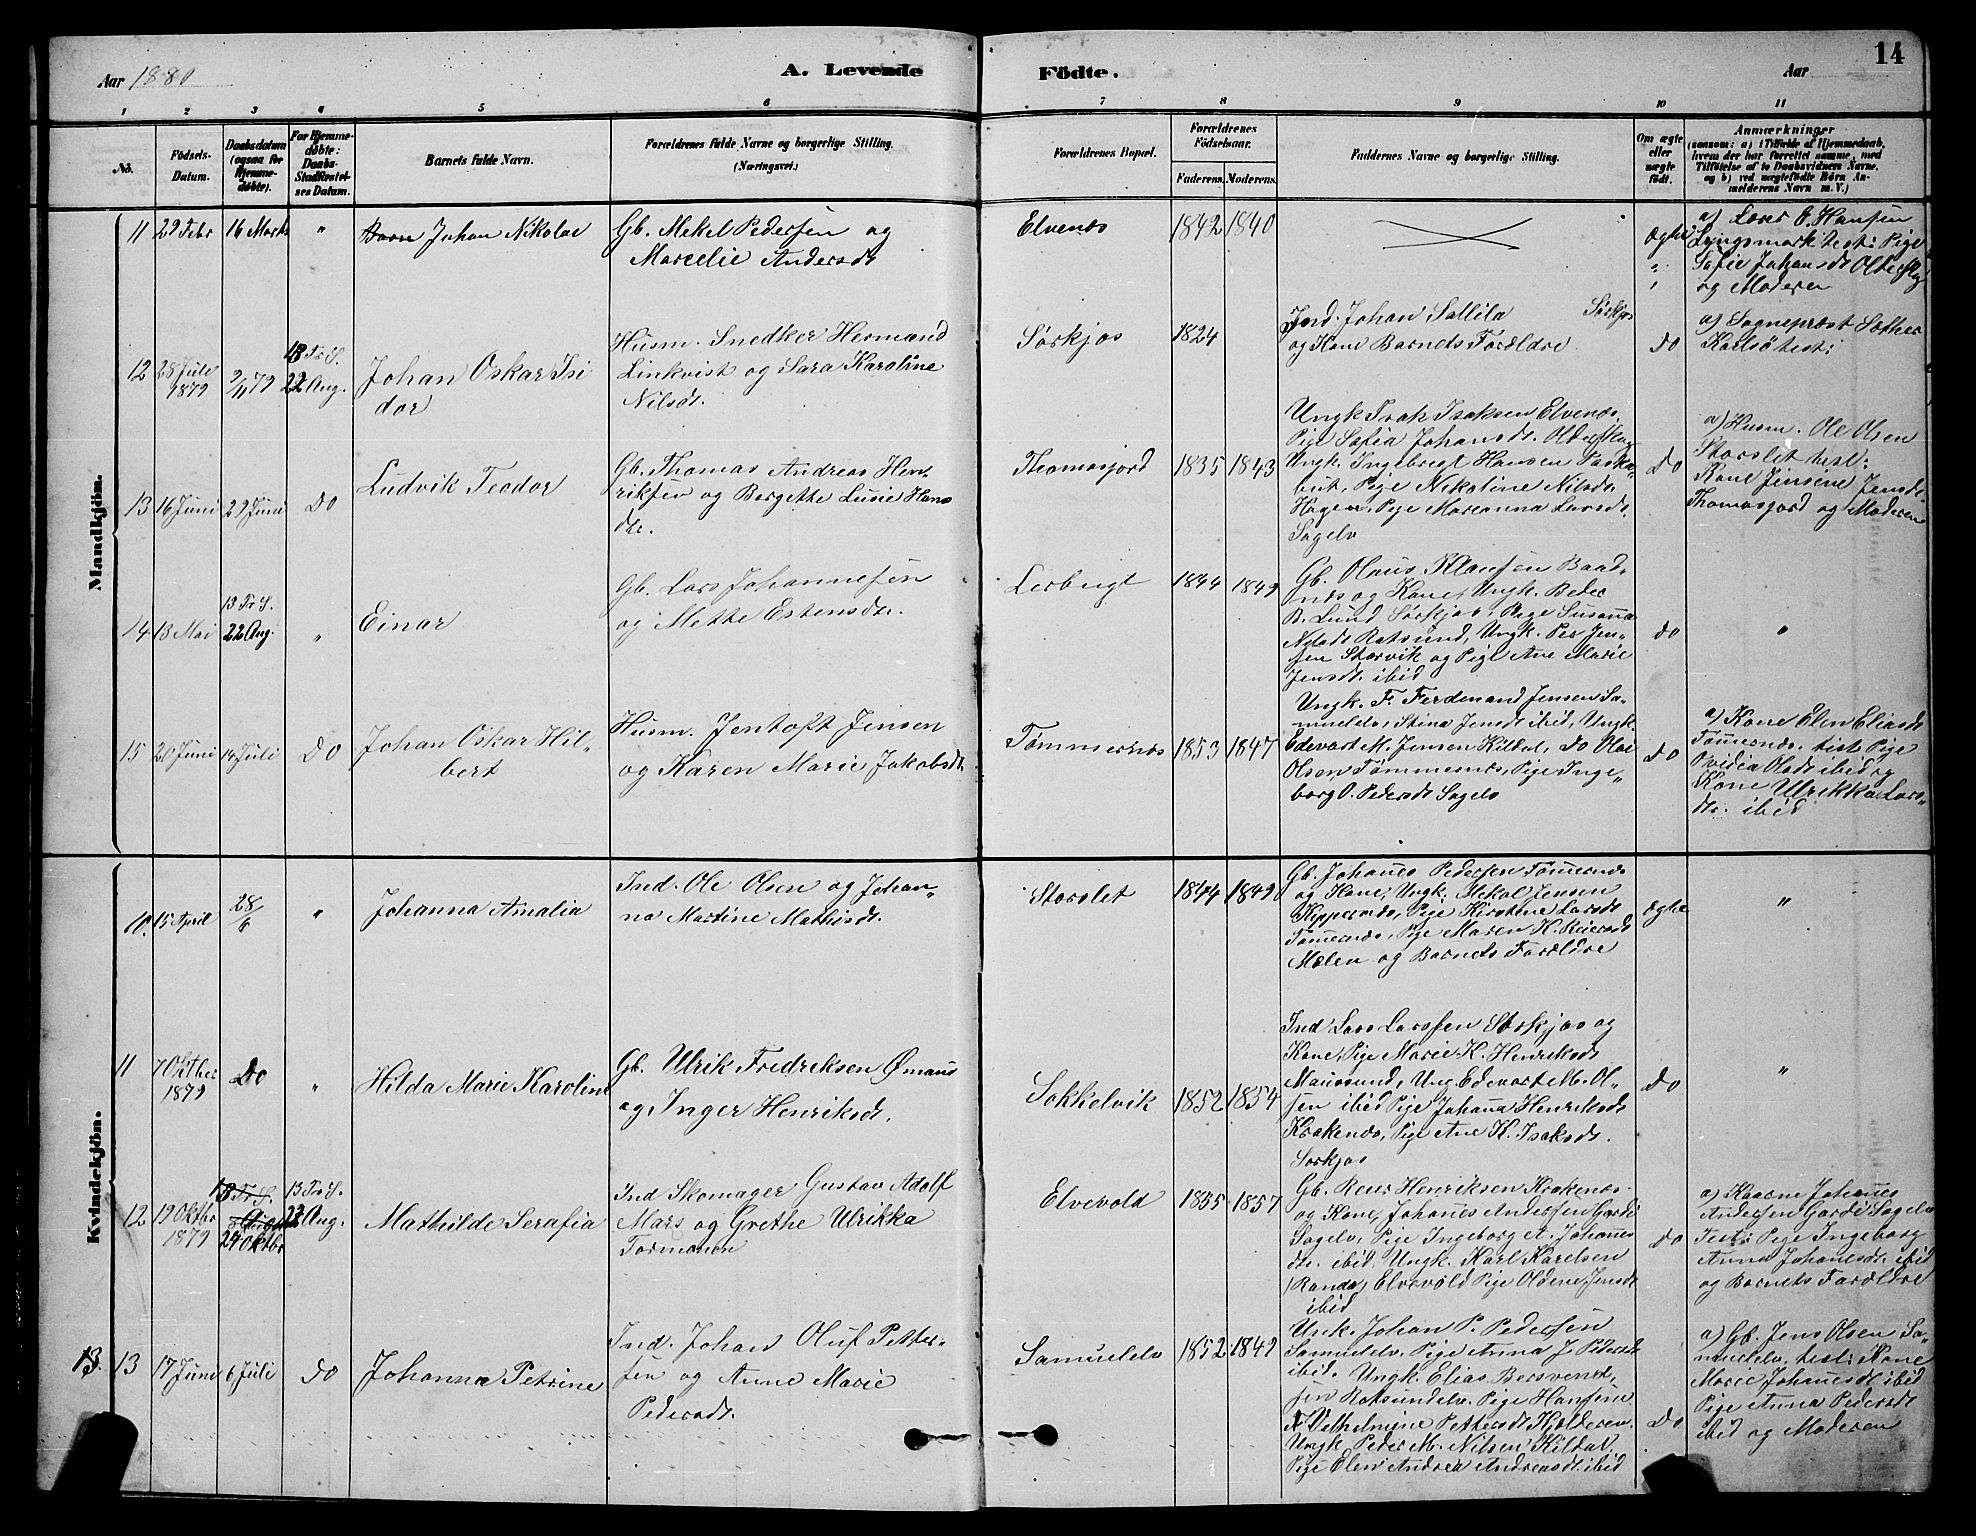 Aar 1880
A. Levende Födte.
Aar
14
1 2 3 4 5 6 7 8 9 10 11
No.
Födsels-
Datum.
Daabsdatum
(ogsaa for
Hjemme-
døbte).
For Hjemme-
døbte:
Daabs-
Stadfæstel-
ses Datum.
Barnets fulde Navn.
Forældrenes fulde Navne og borgerlige Stilling.
(Næringsvei.)
Forældrenes Bopæl.
Forældrenes
Fødselsaar.
Faderens. Moderens.
Faddernes Navne og borgerlige Stilling.
Om ægte
eller
uægte
født.
Anmærkninger
(saasom: a) i Tilfælde af Hjemmedaab,
hvem der har forrettet samme, med
Tilföielse af to Daabsvidners Navne.
og b) ved uægtefødte Börn An-
melderens Navn m. V.)
Mandkjön.
11 29 Febr 16 Marts " Barn Johan Nikolai
Gb. Mekel Pedersen og
Marcelie Andersdt
Elvenes 1842 1840
ægte
a) Lærer O. Hansen
Lyngsmark test: Pige
Safie Johansdt
og Moderen
12 28 Juli
1879
9/11 79
13 Tr. S.
22 Aug.
Johan Oskar Isi
dor
Husm. Snedker Hermand
Linkvist og Sara Karoline
Nilsdt.
Sørkjos 1824
Ind. Johan Sallila Sørkjos
og Kone Barnets Forældre.
Do
a) Sogneprest
Karlsö test:
13 16 Juni 29 Juni Do
Ludvik Teodor
Gb. Thomas Andreas Hen-
riksen og Bergethe Lusie Hans
dtr.
Thomasjord 1835 1843
Ungk. Isaksen Elvenes,
Pige Safia Johansdt.
Ungk. Ingebrigt Hansen
Pige Nikoline Nilsdt.
Hagen, Pige Marianna Larsdt.
Sagelv
Do
a) Husm. Ole Olsen
Storslet test:
Kone Jensine Jensdt
Thomasjord og Moderen
14 13 Mai
13 Tr. S.
22 Aug.
"
Einar
Gb. Lars Johannesen
og Mette Estensdtr.
Lerbugt 1844 1849
Gb. Olaus Klausen Baad-
næs og Kone, Ungk. Peder
B. Lund Sørkjos, Pige Susanna
Nilsdt Rotsund, Ungk. Per Jen-
sen Storvik og Pige Ane Marie
Jensdt. ibid
Do
"
15 20 Juni 14 Juli Do
Johan Oskar Hil-
bert
Husm. Jentoft Jensen
og Karen Marie Jakobsdt.
Tømmernes 1853 1847
Ungk. F. Ferdinand Jensen Sa-
muelelv, Stina Jensdt ibid, Ungk.
Edevart M. Jensen Kildal, Do Olai
Olsen Tømmernes, Pige Inge-
borg O. Pedersdt Sagelv
Do
a) Kone Elen Eliasdt
Tømernes. test: Pige
Ovidia Olsdt ibid og
Kone Ulrikka Lars-
dtr. ibid
Kvindekjön.
10. 15 April 28/6 "
Johanna Amalia
Ind. Ole Olsen og Johan-
na Martine Mathisdt.
Storslet 1844 1849
Gb. Johanes Pedersen Tømernes
og Kone, Ungk: Mikal Jensen
Kippernes, Pige Kirstine Larsdt
Tømernes, Pige Maren K. Reiersdt
Mælen og Barnets Forældre
ægte
"
11 7 Oktber
1879
Do "
Hilda Marie Karoline
Gb. Ulrik Fredriksen Ømaus
og Inger Henriksdt.
Sokkelvik 1852 1854
Ind Lars Larssen Sørkjos og
Kone, Pige Marie K. Henriksdt
Maursund, Ung. Edevart M. Ol-
sen ibid Pige Johana Henriksdt
Krakenes, Pige Ane K. Isaksdt.
Sørkjos
Do
"
12 19 Oktbr
1879
13 Tr. S.
29 Oktbr
13 Tr. S.
22 Aug.
Mathilde Serafia
Ind Skomager Gustav Adolf
Mars og Grethe Ulrikka
Formann
Elvevold 1835 1857
Gb. Reier Henriksen Krakenes.
og Kone, Johanes Andersen Garde
Sagelv, Pige Ingeborg A. Johanes
dtr. ibid, Ungk. Karl Karelsen
(Randa) Elvevold Pige Oldene Jensdt
ibid
Do
a) Kaarne Johanes
Andersen Garde Sagelv
Test: Pige Ingeborg
Anna Johanesdt. ibid
og Barnets Forældre
13. 13 17 Juni 6 Juli Do
Johanna Petrine
Ind. Johan Oluf Petter-
sen og Anne Marie
Pedersdt.
Samuelelv 1852 1849
Ungk. Johan P. Pedersen
Samuelelv, Pige Anna J. Pedersdt
ibid. Ungk. Elias Bersvend-
sen Rotsundelv. Pige Hansine
Vilhelmine Pettersdt Kjelderen.
Ungk. Peder M. Nilsen Kildal
Pige Elen Andrea Andreasdt. ibid
Do
a) Gb. Jens Olsen Sa-
muelelv, test: Kone
Marie Johanesdt ibid
Pige Anna Pedersdt
ibid og Moderen